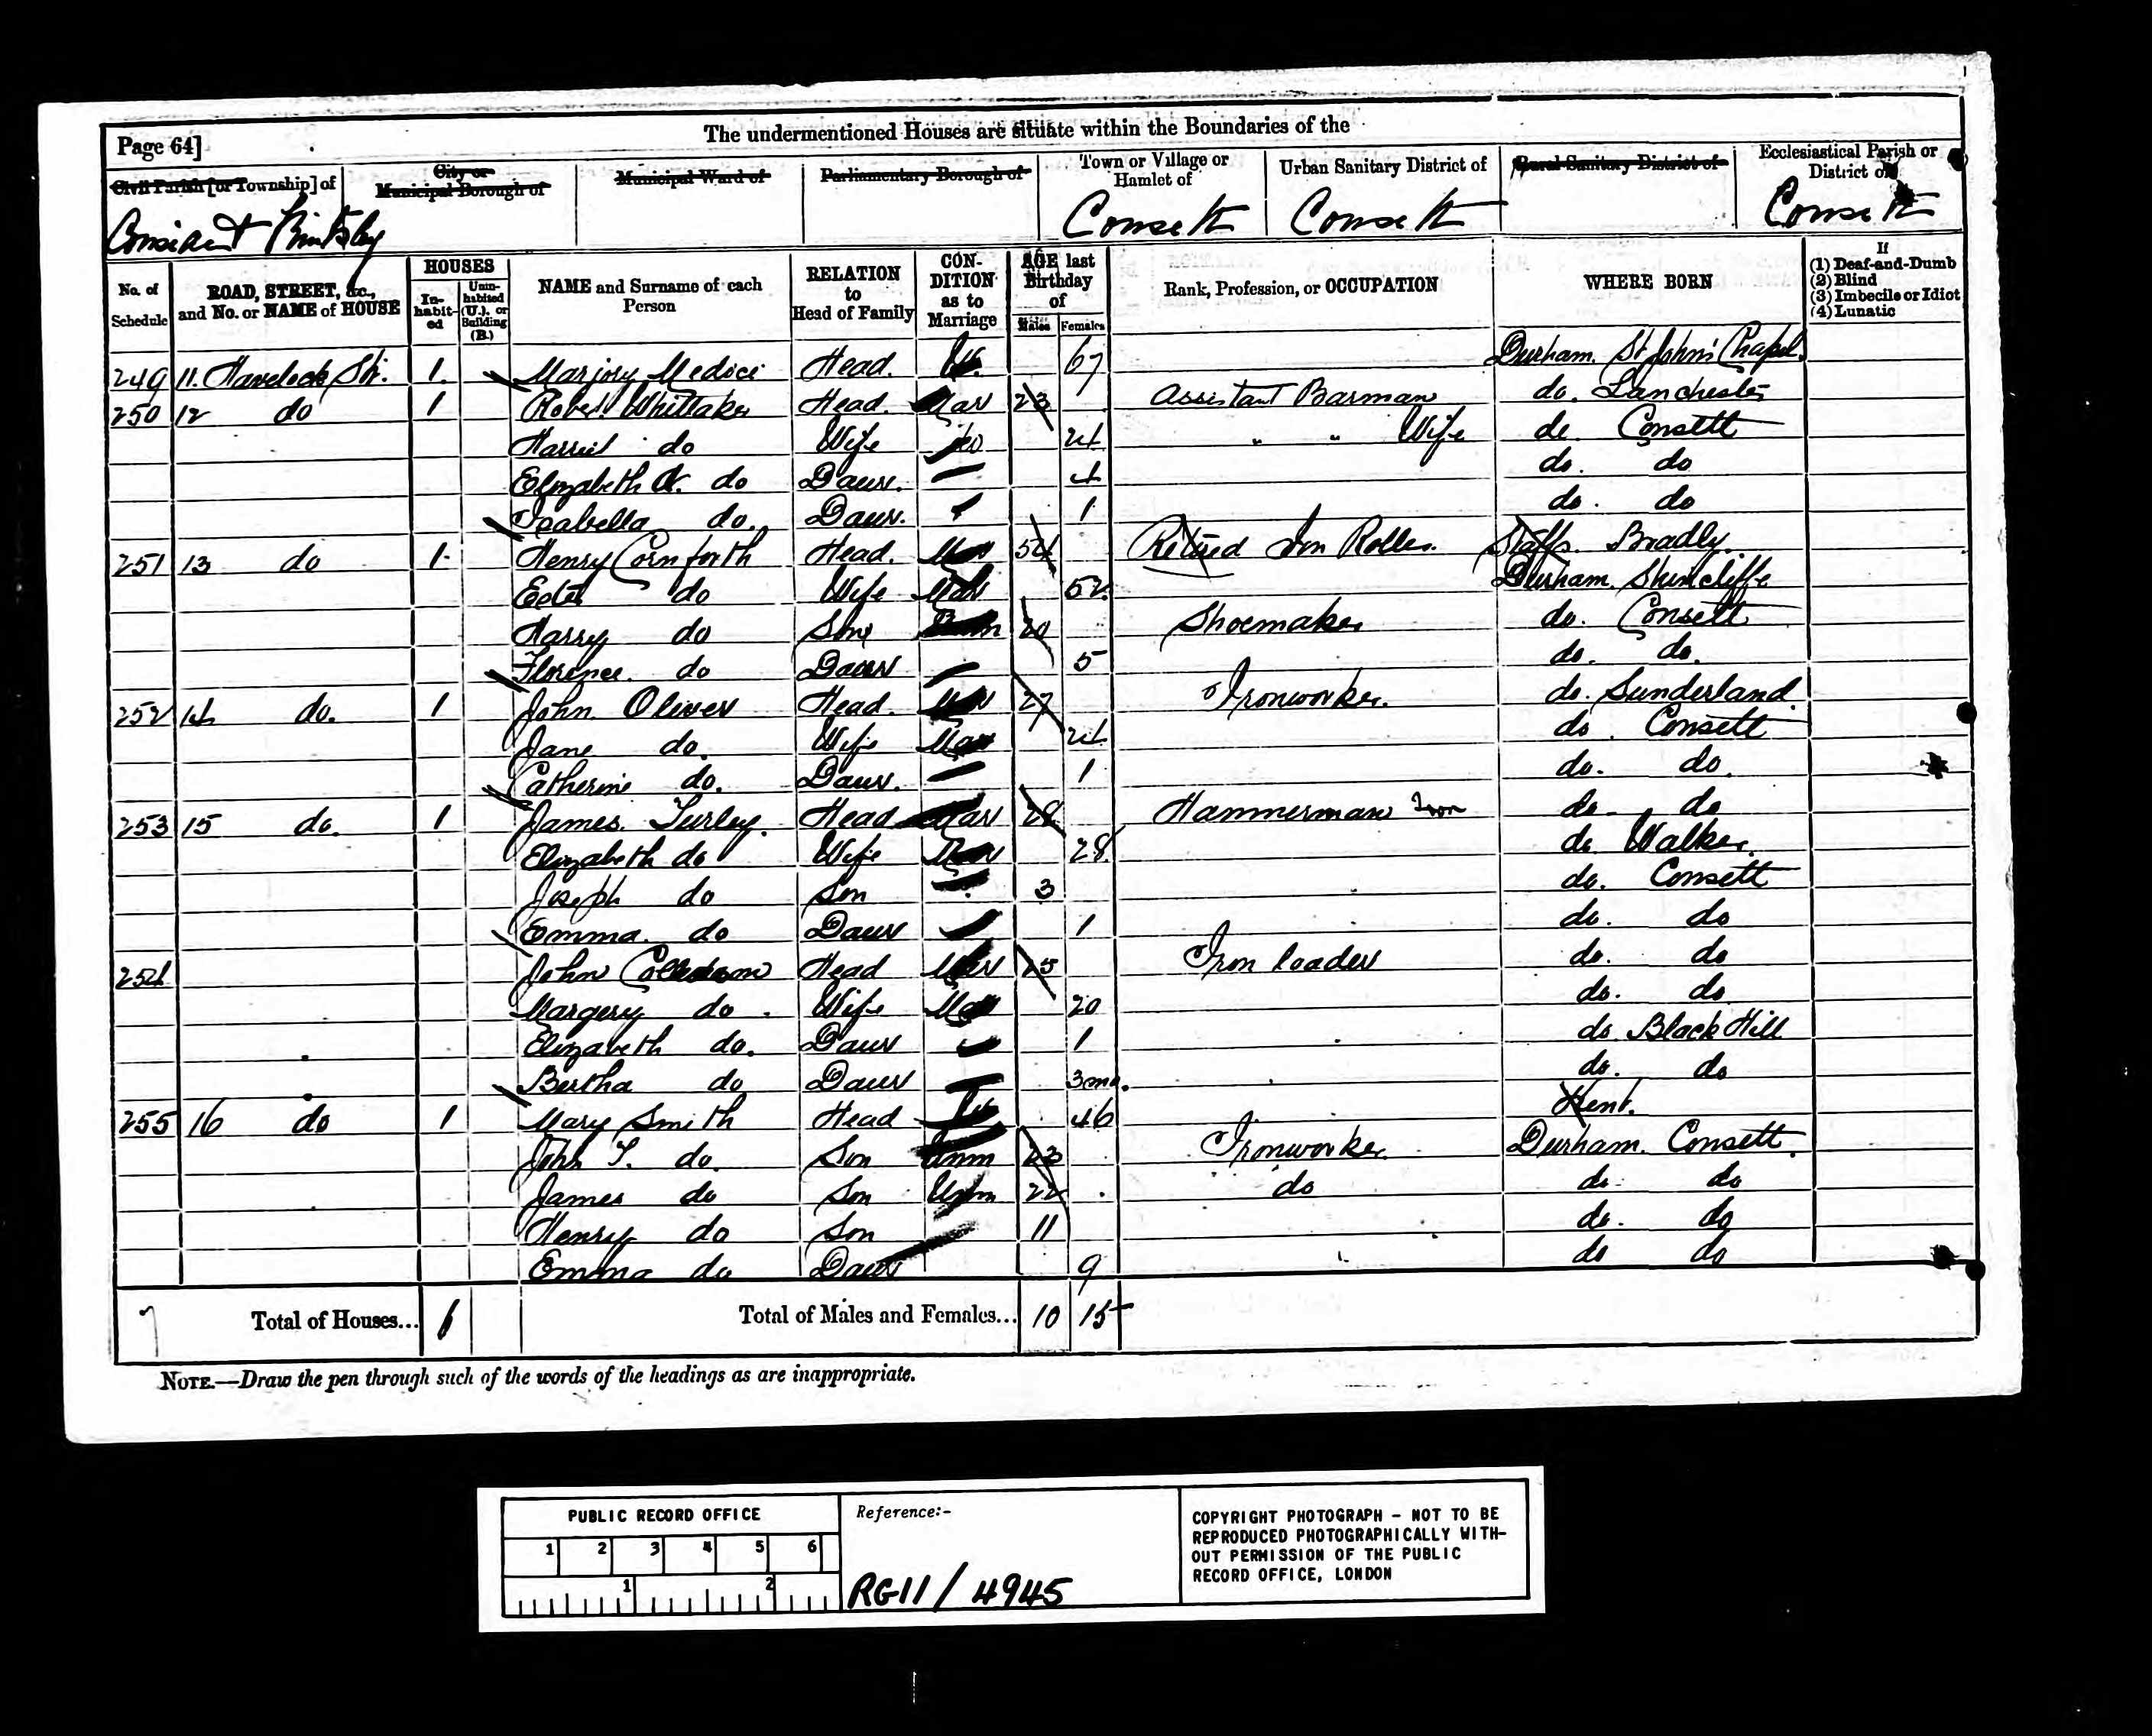 Page 64]
The undermentioned Houses are situate within the Boundaries of the
Civil Parish [or Township] of
City or Municipal Borough of
Municipal Ward of
Parliamentary Borough of
Town or Village or Hamlet of
Urban Sanitary District of
Rural Sanitary District of
Ecclesiastical Parish or District of
Consett Consett Consett
No. of Schedule
ROAD, STREET, &c., and No. or NAME of HOUSE
HOUSES
In-habit-ed
Unin-habited (U.), or Building (B.)
NAME and Surname of each Person
RELATION to Head of Family
CON-DITION as to Marriage
AGE last Birthday of
Males Females
Rank, Profession, or OCCUPATION
WHERE BORN
If
(1) Deaf-and-Dumb
(2) Blind
(3) Imbecile or Idiot
(4) Lunatic
249 11. Havelock Str. 1. Marjory Head. 67 Durham. St John's Chapel
250 12 do 1 Robert Whittaker Head. Mar 23 Assistant Barman do. Lanchester
Harriet do Wife do 24 " " Wife do Consett
Elizabeth A. do Daur. 4 do. do
Isabella do. Daur. 1 do. do
251 13 do 1 Henry Cornforth Head. Mar 54 Retired Iron Roller. Staffs. Bradly.
do Wife Mar 52 Durham. Shincliffe
Harry do Son Unm 20 Shoemaker do. Consett
Florence. do Daur 5 do. do.
252 14 do. 1 John Oliver Head. Mar 27 Ironworker. do. Sunderland
Jane do. Wife Mar 24 do. Consett
Catherine do. Daur. 1 do. do.
253 15 do. 1 James Turley. Head Mar 28 Hammerman Iron do. do
Elizabeth do Wife Mar 28 do Walker.
Joseph do Son 3 do. Consett
Emma. do Daur 1 do. do
254 John Head Mar 25 Iron loader do. do
Margery do. Wife Mar 20 do. do
Elizabeth do. Daur 1 do. Black Hill
Bertha do Daur 3mo. do. do
255 16 do 1 Mary Smith Head 46 Kent.
John T. do. Son Unm 23 Ironworker. Durham. Consett.
James do Son Unm 22 do do. do
Henry do Son 11 do. do
Emma do Daur 9 do do
Total of Houses... 6
Total of Males and Females... 10 15
NOTE.—Draw the pen through such of the words of the headings as are inappropriate.
PUBLIC RECORD OFFICE
1 2 3 4 5 6
1 2
Reference:-
RG11/4945
COPYRIGHT PHOTOGRAPH - NOT TO BE
REPRODUCED PHOTOGRAPHICALLY WITH-
OUT PERMISSION OF THE PUBLIC
RECORD OFFICE, LONDON